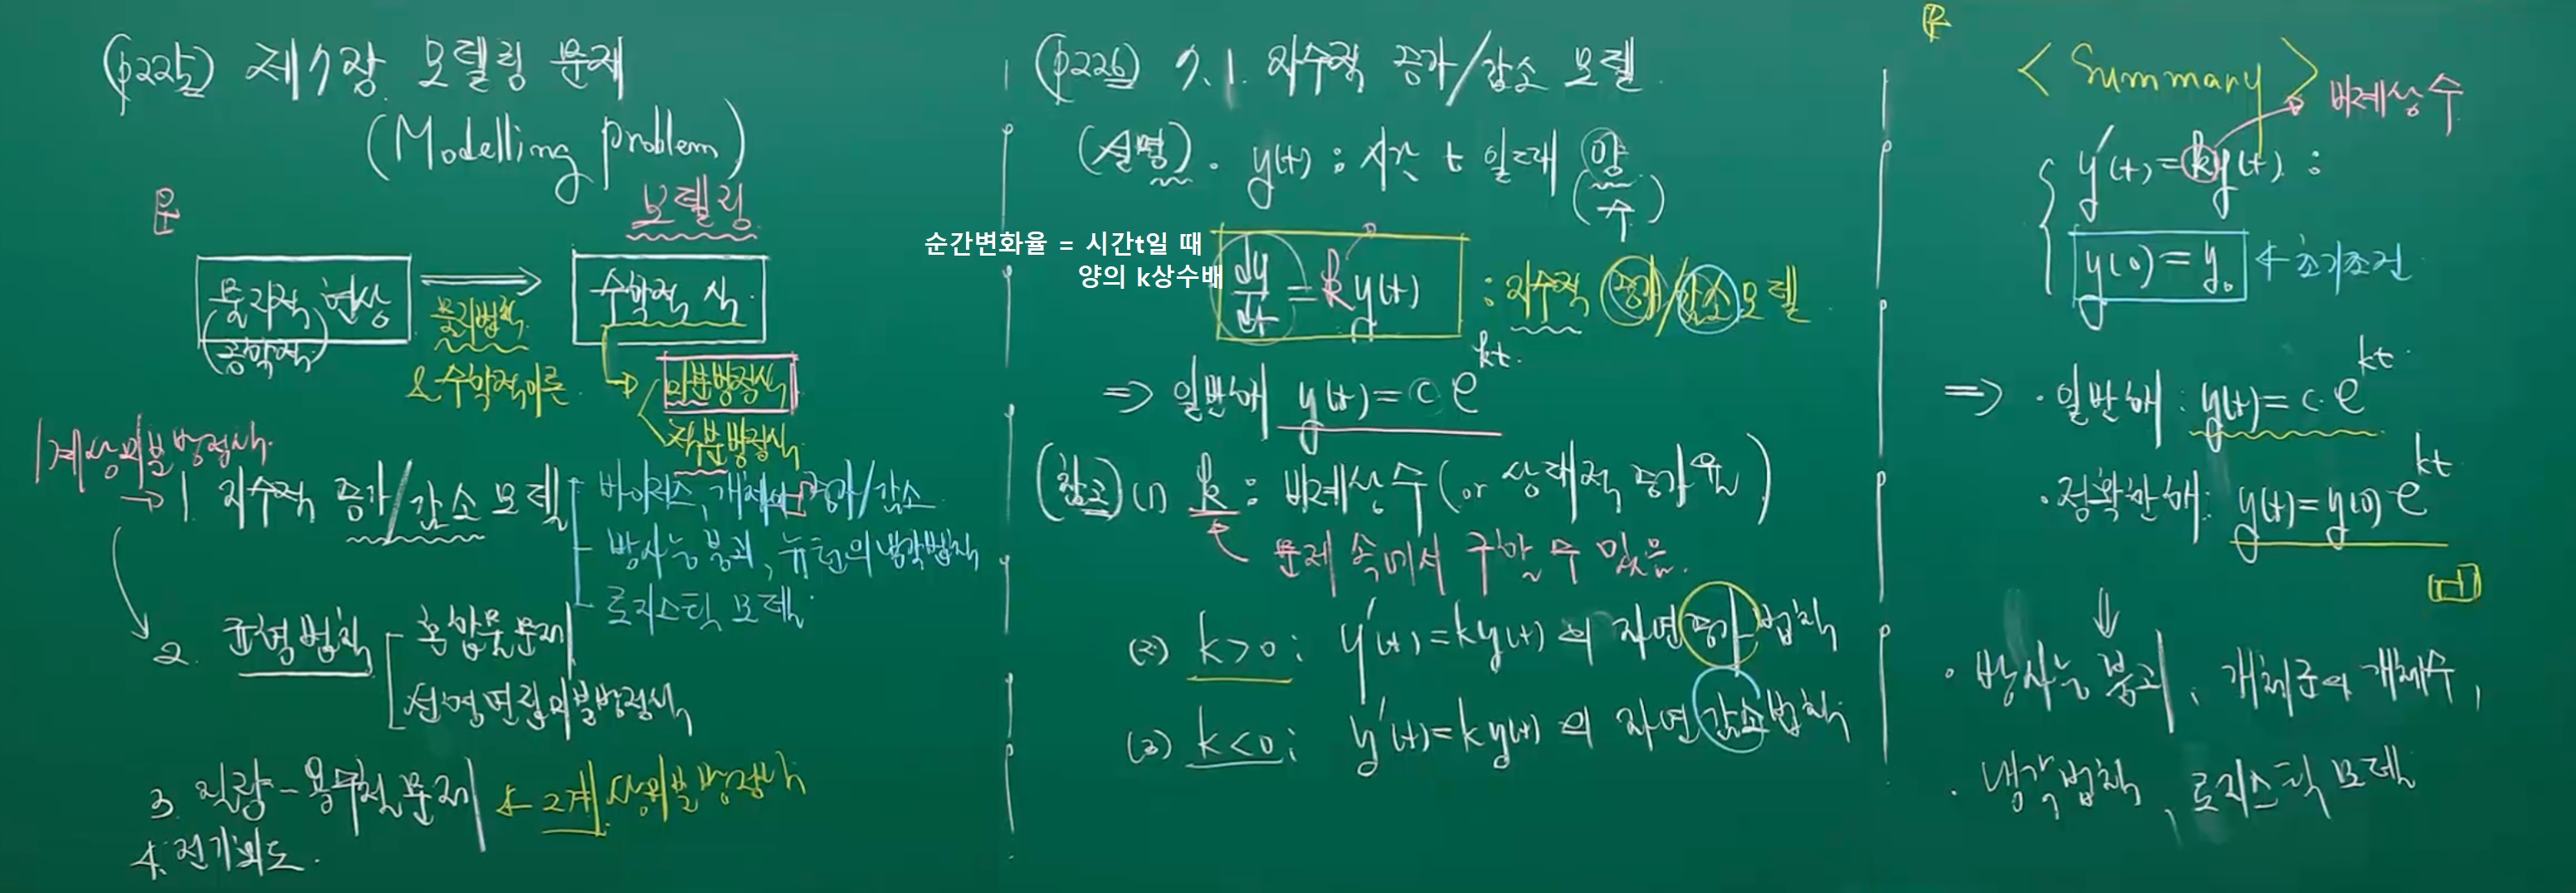 (p225) 제7장 모델링 문제
(Modelling problem)
문
모델링
물리적 현상
(공학적)
물리법칙
& 수학적이론
수학적 식
미분방정식
적분방정식
1계상미분방정식
→ 1. 지수적 증가/감소 모델
바이러스, 개체의 증가/감소
방사능 붕괴, 뉴턴의 냉각법칙
로지스틱 모델
2. 균형법칙
혼합물문제
선형연립미분방정식
3. 질량-용수철문제 ← 2계상미분방정식
4. 전기회로.
(p226) 7.1. 지수적 증가/감소 모델.
(설명). y(t) : 시간 t 일때 양
(수)
순간변화율 = 시간t일 때
양의 k상수배
dy/dt = k y(t) : 지수적 증가/감소모델
=> 일반해 y(t) = c e^{kt}.
(참고) (1) k : 비례상수 (or 상대적 증가율)
문제 속에서 구할 수 있음.
(2) k>0 ; y'(t)=ky(t) 의 자연증가법칙
(3) k<0 ; y'(t)=ky(t) 의 자연감소법칙
< Summary >
비례상수
y'(t) = ky(t) :
y(0) = y₀ ← 초기조건
=> · 일반해 : y(t) = c·e^{kt}.
· 정확한해 : y(t) = y(0) e^{kt}
⇓
· 방사능 붕괴, 개체군의 개체수,
· 냉각법칙, 로지스틱 모델